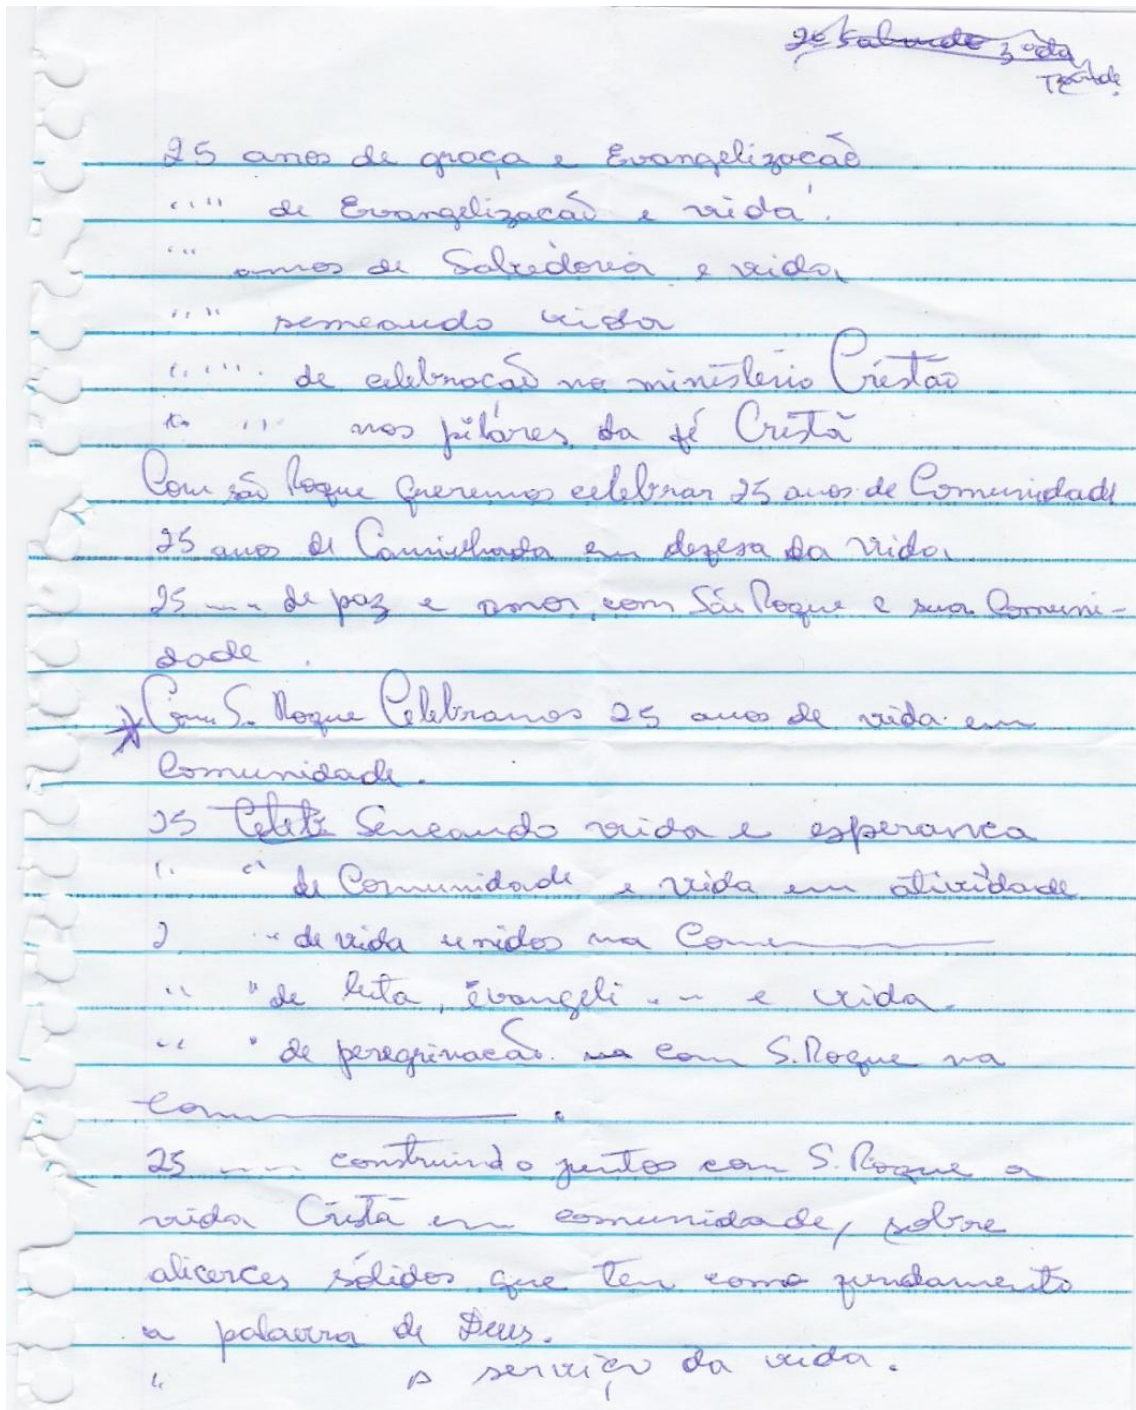 2º Sabado 3 da
Tarde.
25 anos de graça e Evangelizacão
" " de Evangelizacão e vida.
" anos de Sabedoria e vida
" " semeando vida
" " de celebracão no ministério Cristão
" " nos pilares da fé Cristã
Com são Roque queremos celebrar 25 anos de Comunidade
25 anos de Caminhada em defesa da vida
25 -- -- de paz e amor, com São Roque e sua Comuni-
dade.
Com S. Roque Celebramos 25 anos de vida em
Comunidade.
25 Semeando vida e esperanca
" " de Comunidade e vida em atividade
" " de vida unidos na Com
" " de luta, evangeli -- -- e vida.
" " de peregrinacão na com S. Roque na
Com .
25 -- -- construindo juntos com S. Roque a
vida Cristã em comunidade, sobre
alicerces sólidos que tem como fundamento
a palavra de Deus.
" a serviço da vida.